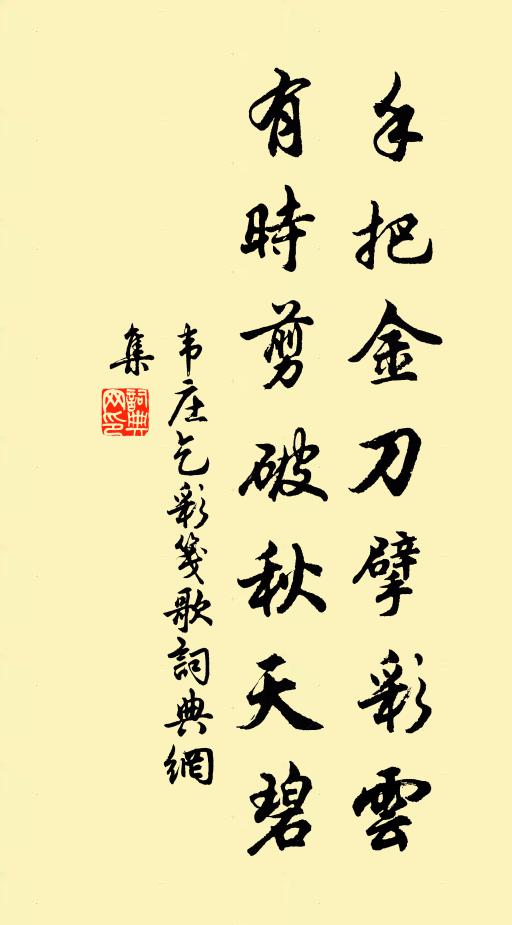 手把金刀擘彩雲
有時剪破秋天碧
韦庄乞彩箋歌詞典網
集
詞典
网印